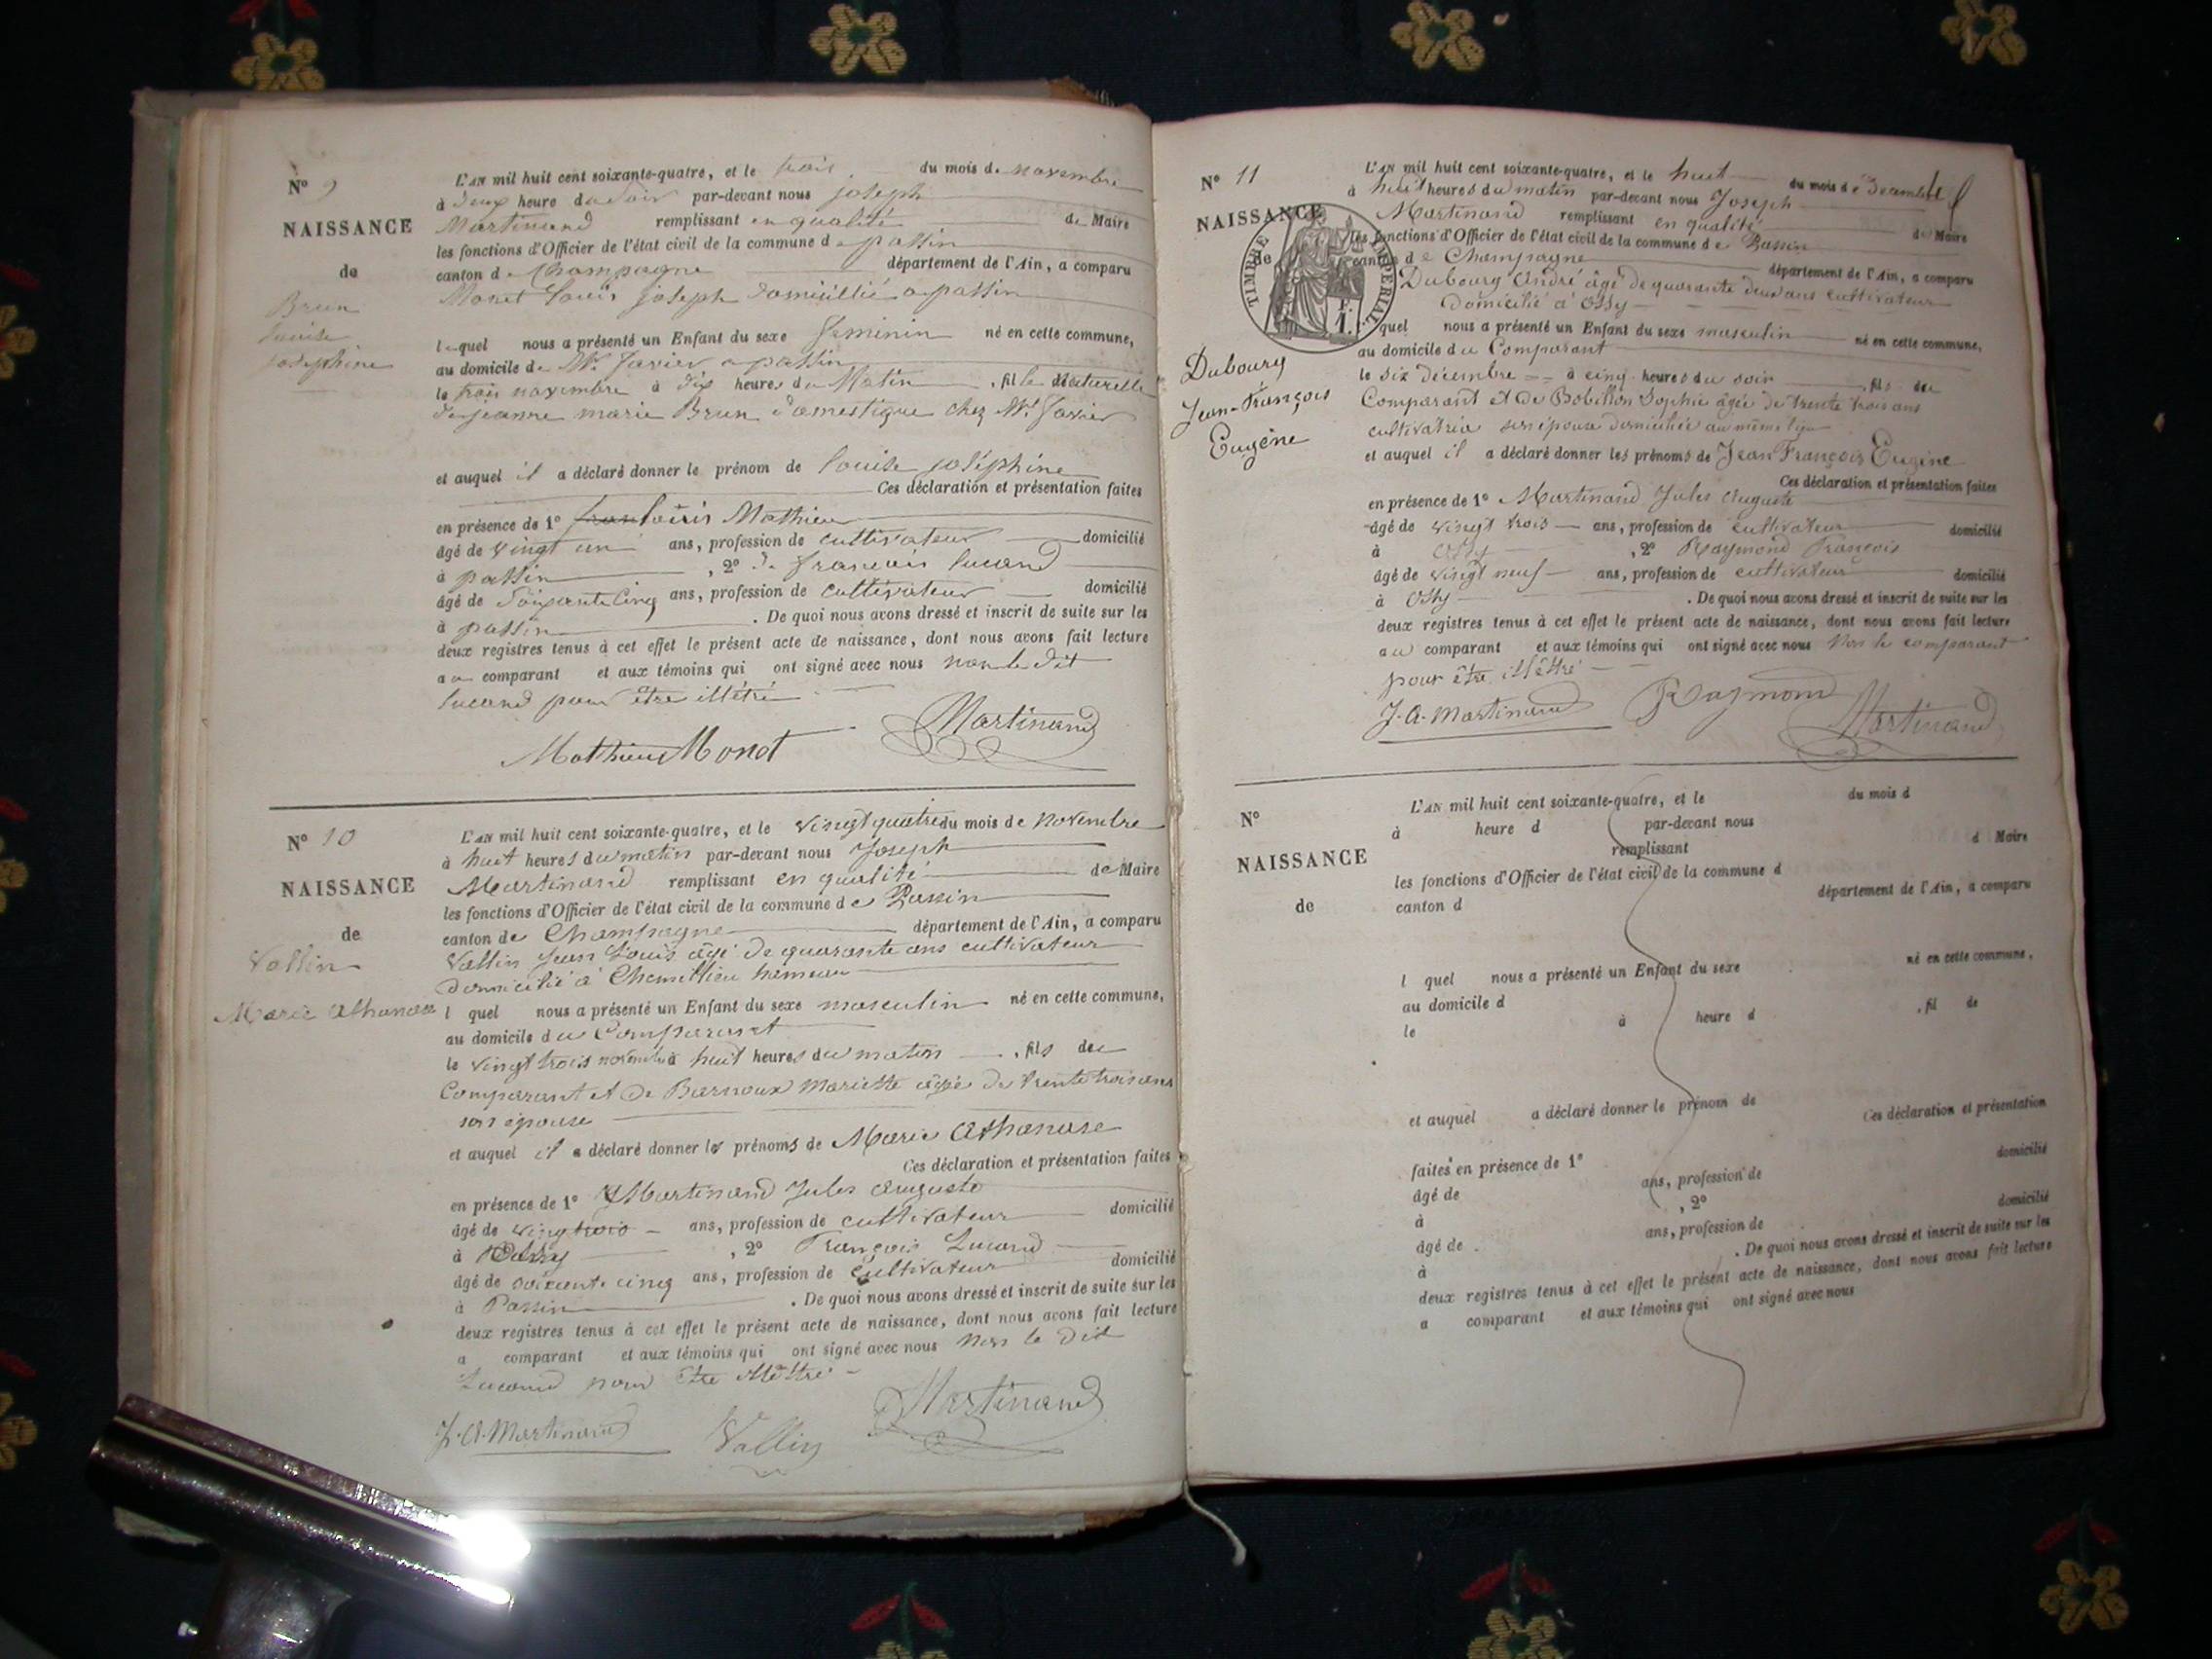 N° 9
NAISSANCE
de
Brun
Louise
Joséphine
L'AN mil huit cent soixante-quatre, et le trois du mois de novembre
à deux heure du soir par-devant nous joseph
Martinand remplissant en qualité de Maire
les fonctions d'Officier de l'état civil de la commune de passin
canton de Champagne département de l'Ain, a comparu
Monet Louis joseph domicillié a passin
lequel nous a présenté un Enfant du sexe feminin né en cette commune,
au domicile de Mr. favier a passin
le trois novembre à dix heures du Matin , fille naturelle
de jeanne marie Brun domestique chez Mr favier
et auquel il a déclaré donner le prénom de louise joséphine
Ces déclaration et présentation faites
en présence de 1° louis Mathieu
âgé de vingt un ans, profession de cultivateur domicilié
à passin , 2° francois lucand
âgé de soixante cinq ans, profession de cultivateur domicilié
à passin . De quoi nous avons dressé et inscrit de suite sur les
deux registres tenus à cet effet le présent acte de naissance, dont nous avons fait lecture
au comparant et aux témoins qui ont signé avec nous non le dit
lucand pour être illétré
Mathieu Monet Martinand
N° 10
NAISSANCE
de
Vallin
Marie Athanase
L'AN mil huit cent soixante-quatre, et le vingt quatre du mois de novembre
à huit heures du matin par-devant nous Joseph
Martinand remplissant en qualité de Maire
les fonctions d'Officier de l'état civil de la commune de Passin
canton de Champagne département de l'Ain, a comparu
Vallin Jean Louis âgé de quarante ans cultivateur
domicilié à Chemillieu hameau
l quel nous a présenté un Enfant du sexe masculin né en cette commune,
au domicile du Comparant
le vingt trois novembre à huit heures du matin , fils du
Comparant et de Barnoux Mariette âgée de trente trois ans
son épouse
et auquel il a déclaré donner les prénoms de Marie Athanase
Ces déclaration et présentation faites
en présence de 1° Martinand Jules Auguste
âgé de vingt trois ans, profession de cultivateur domicilié
à Ossy , 2° François Lucand
âgé de soixante cinq ans, profession de cultivateur domicilié
à Passin . De quoi nous avons dressé et inscrit de suite sur les
deux registres tenus à cet effet le présent acte de naissance, dont nous avons fait lecture
a comparant et aux témoins qui ont signé avec nous non le dit
Lucand pour être illéttré
J. A. Martinand Vallin Martinand
N° 11
NAISSANCE
de
TIMBRE IMPERIAL
Dubourg
Jean-François
Eugène
L'AN mil huit cent soixante-quatre, et le huit du mois de Decembre
à huit heures du matin par-devant nous Joseph
Martinand remplissant en qualité de Maire
les fonctions d'Officier de l'état civil de la commune de Passin
canton de Champagne département de l'Ain, a comparu
Dubourg André âgé de quarante deux ans cultivateur
domicilié à Ossy
quel nous a présenté un Enfant du sexe masculin né en cette commune,
au domicile du Comparant
le six décembre à cinq heures du soir , fils du
Comparant et de Bobillon Sophie âgée de trente trois ans
cultivatrice son épouse domiciliée au même lieu
et auquel il a déclaré donner les prénoms de Jean François Eugène
Ces déclaration et présentation faites
en présence de 1° Martinand Jules Auguste
âgé de vingt trois ans, profession de cultivateur domicilié
à Ossy , 2° Raymond François
âgé de vingt neuf ans, profession de cultivateur domicilié
à Ossy . De quoi nous avons dressé et inscrit de suite sur les
deux registres tenus à cet effet le présent acte de naissance, dont nous avons fait lecture
au comparant et aux témoins qui ont signé avec nous Non le comparant
pour être illéttré
J. A. Martinand Raymond Martinand
N°
NAISSANCE
de
L'AN mil huit cent soixante-quatre, et le du mois d
à heure d par-devant nous
remplissant d Maire
les fonctions d'Officier de l'état civil de la commune d
canton d département de l'Ain, a comparu
l quel nous a présenté un Enfant du sexe né en cette commune,
au domicile d
le à heure d , fil de
et auquel a déclaré donner le prénom de
Ces déclaration et présentation
faites en présence de 1°
âgé de ans, profession de domicilié
à , 2°
âgé de ans, profession de domicilié
à . De quoi nous avons dressé et inscrit de suite sur les
deux registres tenus à cet effet le présent acte de naissance, dont nous avons fait lecture
a comparant et aux témoins qui ont signé avec nous